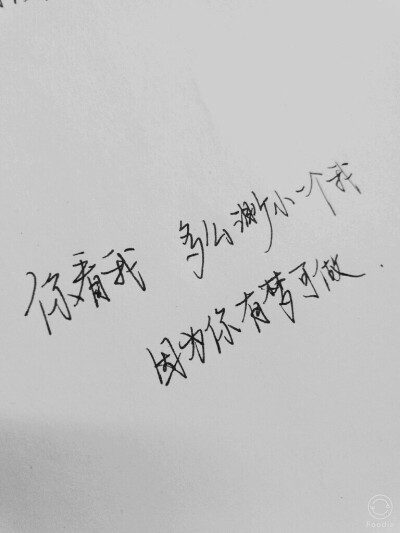 你看我 多么渺小一个我
因为你有梦可做.
Foodie